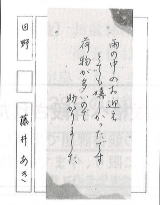 雨の中のお迎え
とても嬉しかったです
荷物が多いので
助かりました。
藤井あき
田野